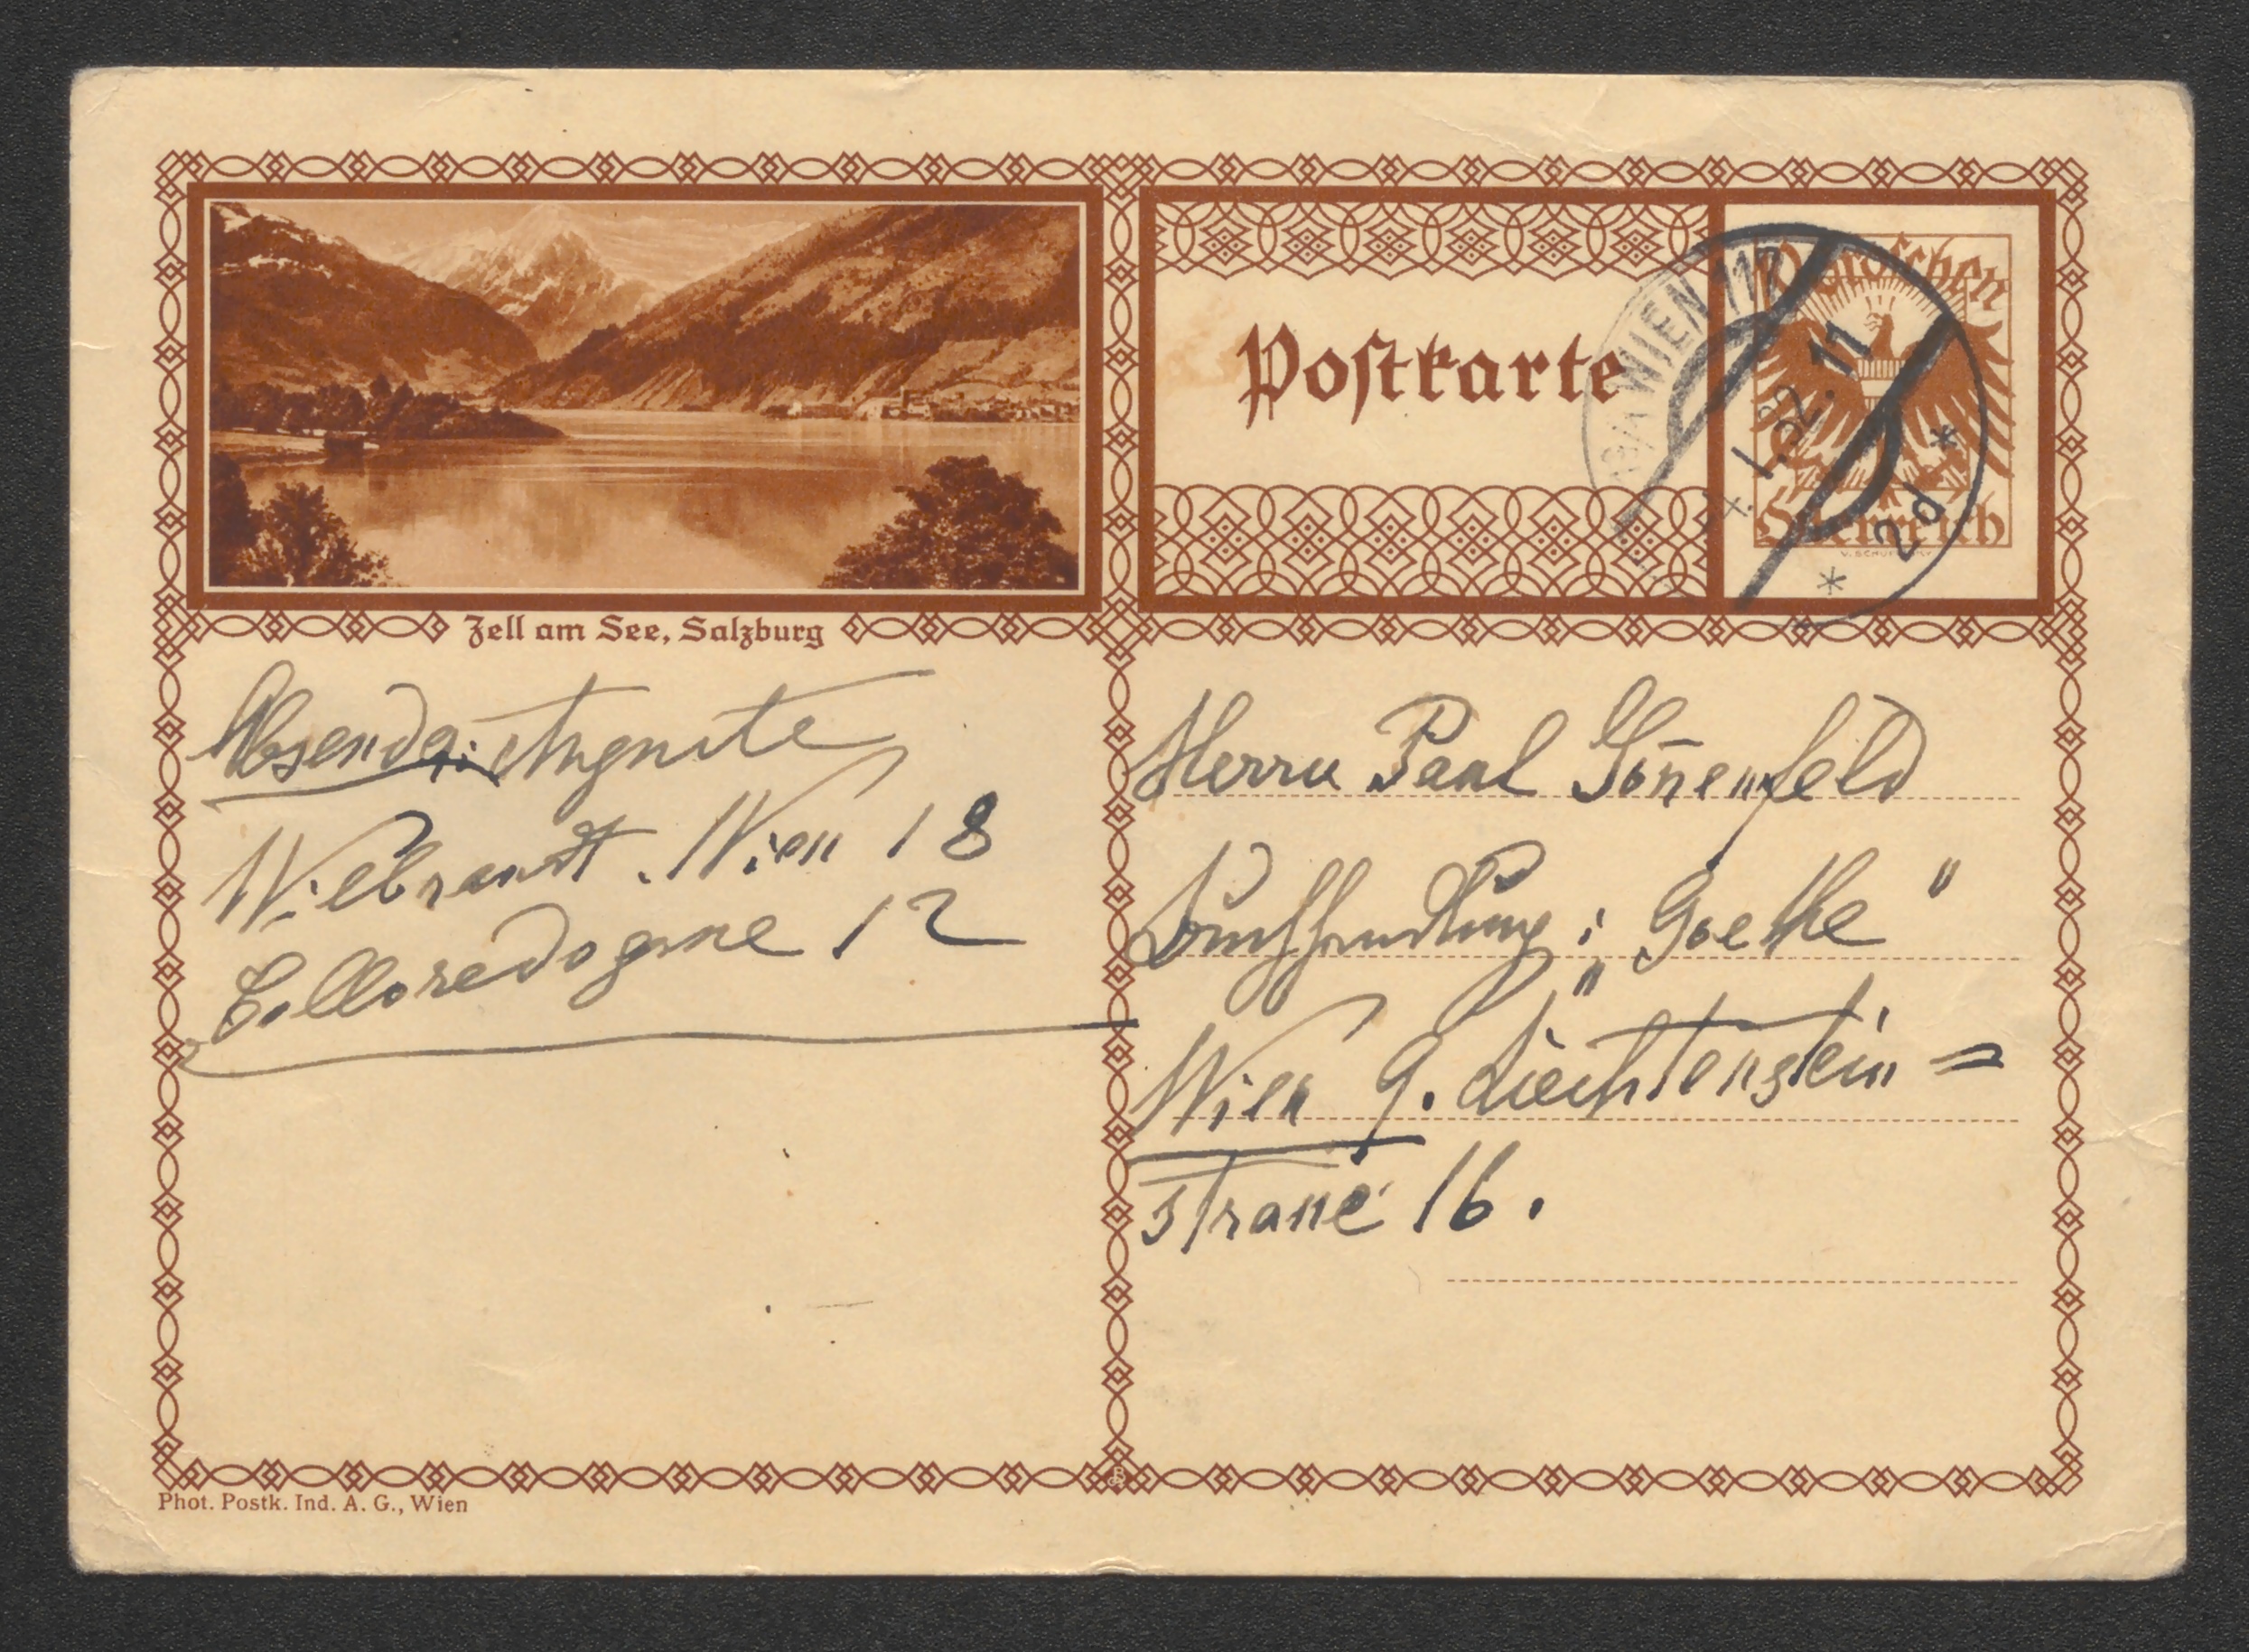 Zell am See, Salzburg
Postkarte
Groschen
Österreich
WIEN 117
I. 32. 11
* 2d *
Absender: Auguste
Wilbrandt. Wien 18
Colloredogasse 12
Herrn Paul Sonnenfeld
Buchhandlung: „Goethe"
Wien 9. Liechtenstein=
strasse 16.
Phot. Postk. Ind. A. G., Wien